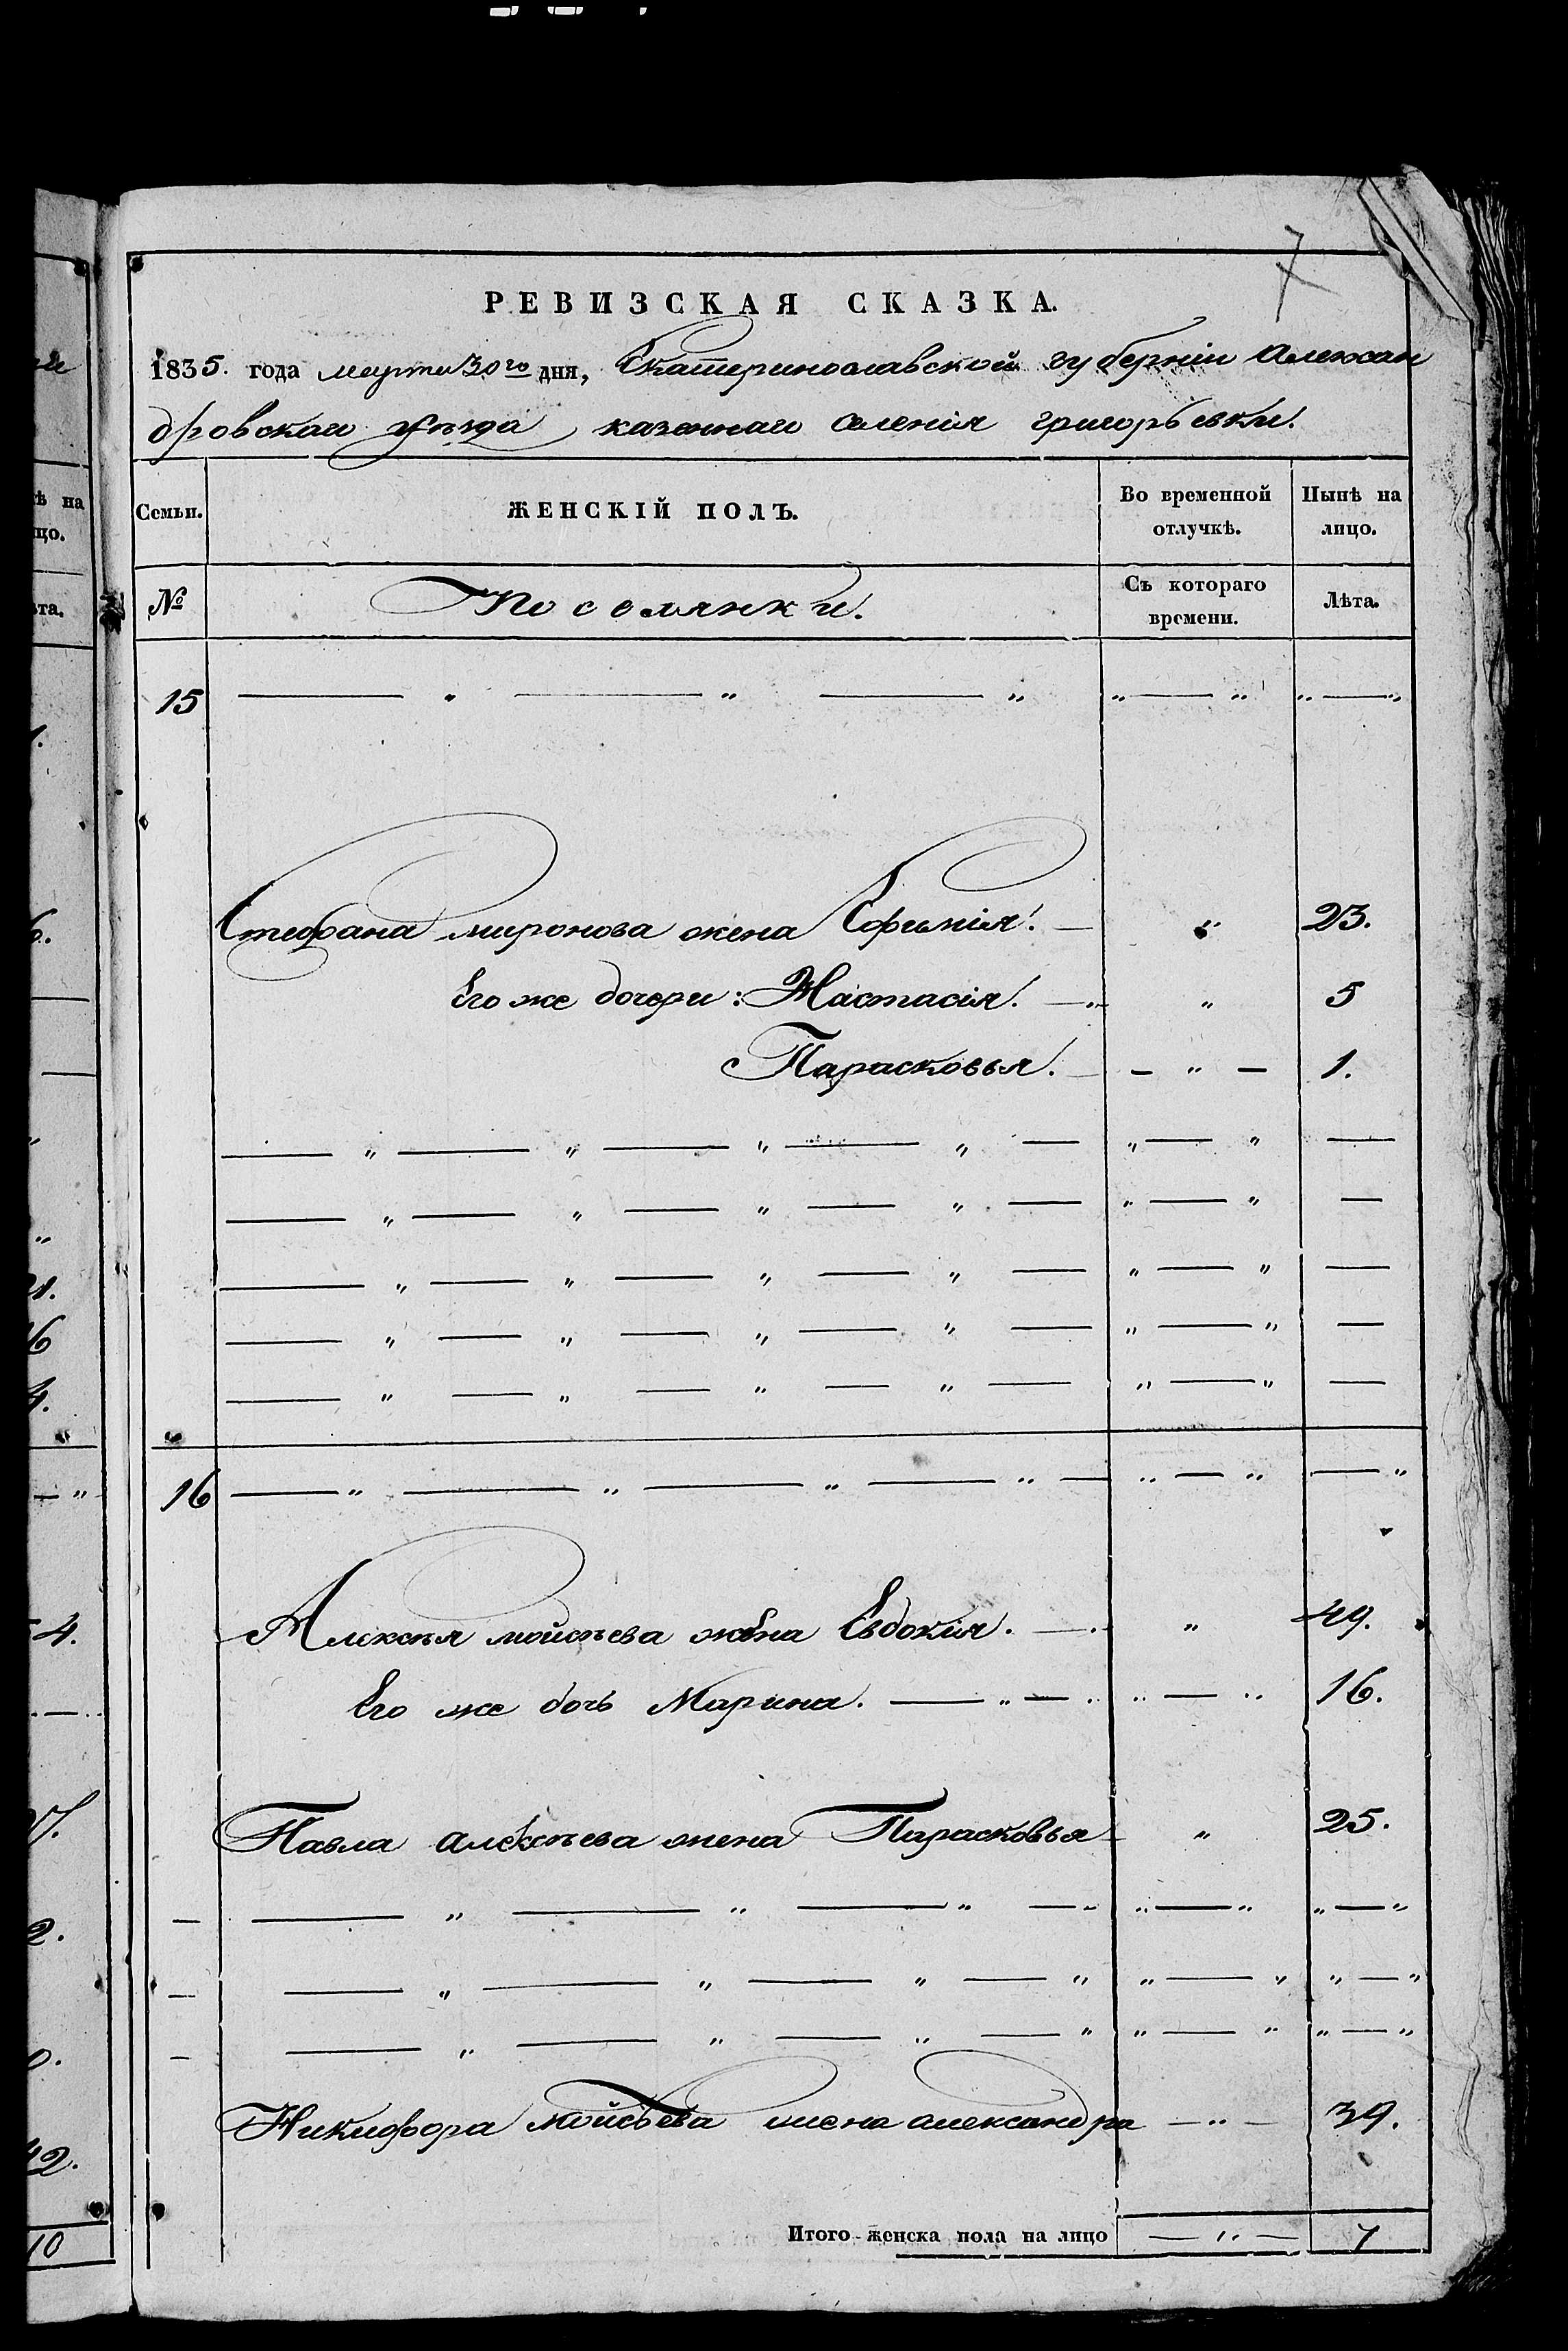 7
РЕВИЗСКАЯ СКАЗКА.
1835. года марта 30го дня, Екатеринославской губерніи Алексан
дровскаго уѣзда казеннаго Селенія григорьевки.
Семьи. ЖЕНСКІЙ ПОЛЪ. Во временной отлучкѣ. Нынѣ на лицо.
№ Поселянки. Съ котораго времени. Лѣта.
15 — " — " — " " — " " — "
Стефана миронова жена Ефимія. — " 23.
Его же дочери: Настасія. — " 5
Парасковья. — " — 1.
— " — " — " — " — " — " —
— " — " — " — " — " — " —
— " — " — " — " — " — " —
— " — " — " — " — " — " —
— " — " — " — " — " — " —
16 — " — " — " — " — " — " — "
Алексѣя мойсѣева жена Евдокія. — " 49.
Его же дочь Марина. — " — " — " 16.
Павла алексѣева жена Парасковья " 25.
— — " — " — " — " — " " — "
— — " — " — " — " " — " " — "
— — " — " — " — " " — " " — "
Никифора мойсѣева жена александра — " — 39.
Итого женска пола на лицо — " — 7
ѣ на
цо.
ѣта.
1.
6.
"
"
21.
16
4.
— "
54.
2.
0.
42.
10